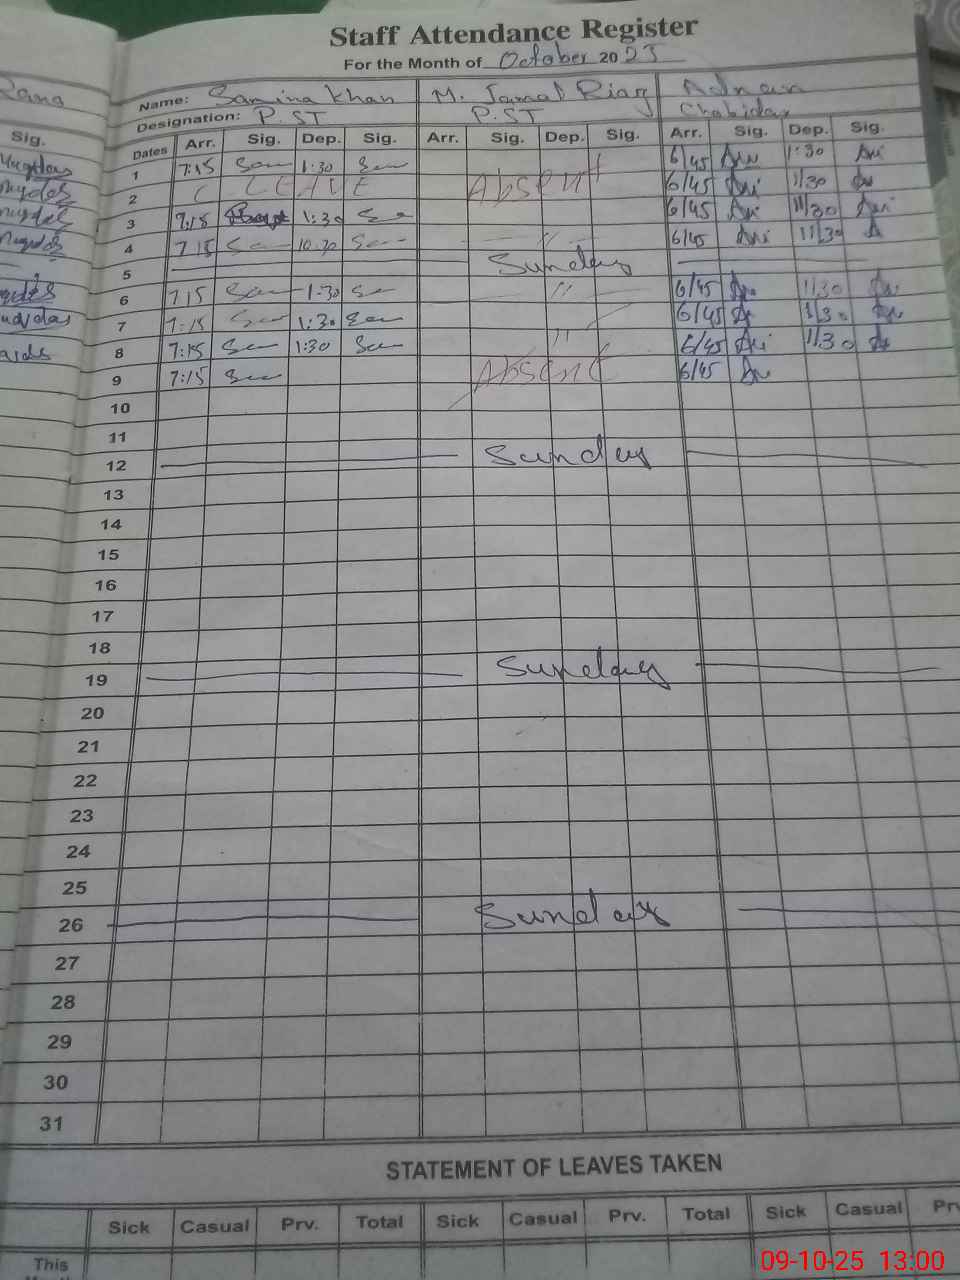 Staff Attendance Register
For the Month of October 2025
Name: Samina Khan M. Jamal Riaz Adnan
Designation: P.ST P.ST
Sig. Dates Arr. Sig. Dep. Sig. Arr. Sig. Dep. Sig. Arr. Sig. Dep. Sig.
1 7:15 Sam 1:30 Sam Absent 6/45 1:30
2 C LEAVE 6/45 1/30
3 7:15 1:30 6/45 11/30
4 7 15 Sam 10:30 Sam — " — 6/45 11/30
5 Sunday
6 7 15 Sam 1:30 Sam — " — 6/45 11:30
7 7:15 Sam 1:30 Sam 6/45 1/30
8 7:15 Sam 1:30 Sam " 6/45 1/30
9 7:15 Sam Absent 6/45
10
11
12 Sunday
13
14
15
16
17
18
19 Sunday
20
21
22
23
24
25
26 Sunday
27
28
29
30
31
STATEMENT OF LEAVES TAKEN
Sick Casual Prv. Total Sick Casual Prv. Total Sick Casual
This
09-10-25 13:00